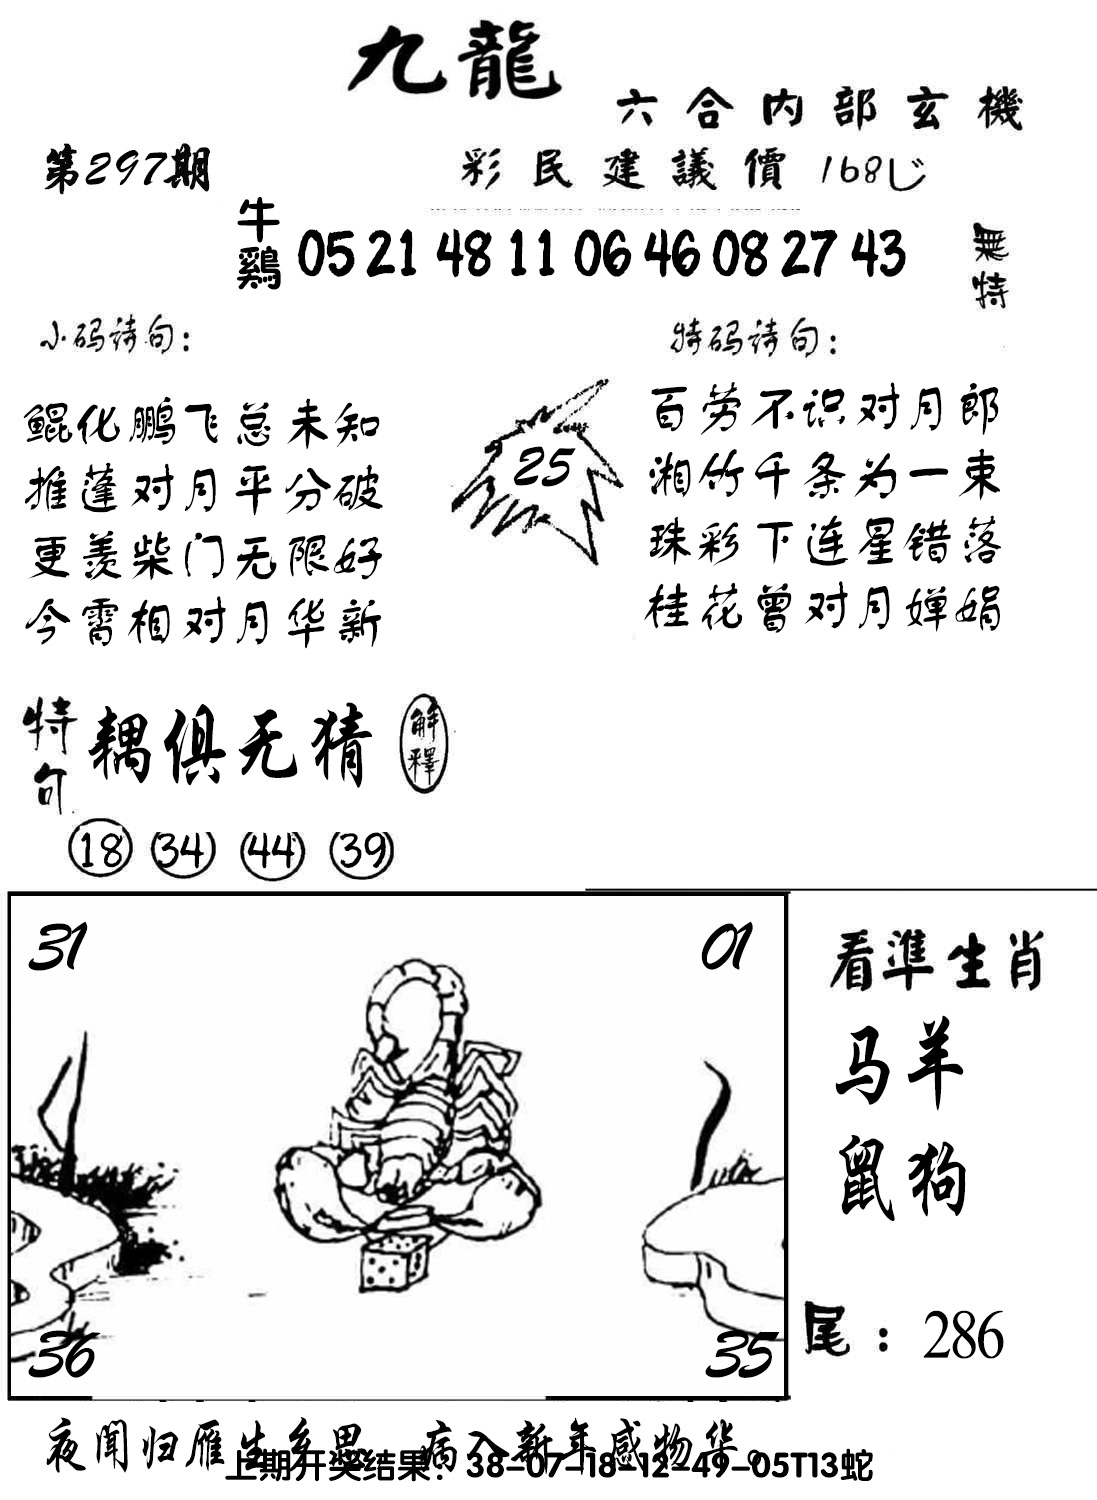 九龍
六合内部玄機
第297期
彩民建議價 168
牛鷄 05 21 48 11 06 46 08 27 43
無特
小码诗句：
鲲化鹏飞总未知
推蓬对月平分破
更羡柴门无限好
今霄相对月华新
25
特码诗句：
百劳不识对月郎
湘竹千条为一束
珠彩下连星错落
桂花曾对月婵娟
特句
耦俱无猜
解釋
18 34 44 39
31 01
36 35
看準生肖
马羊
鼠狗
尾：286
夜聞归雁生乡思 病入新年感物华。
上期开奖结果：38-07-18-12-49-05T13蛇